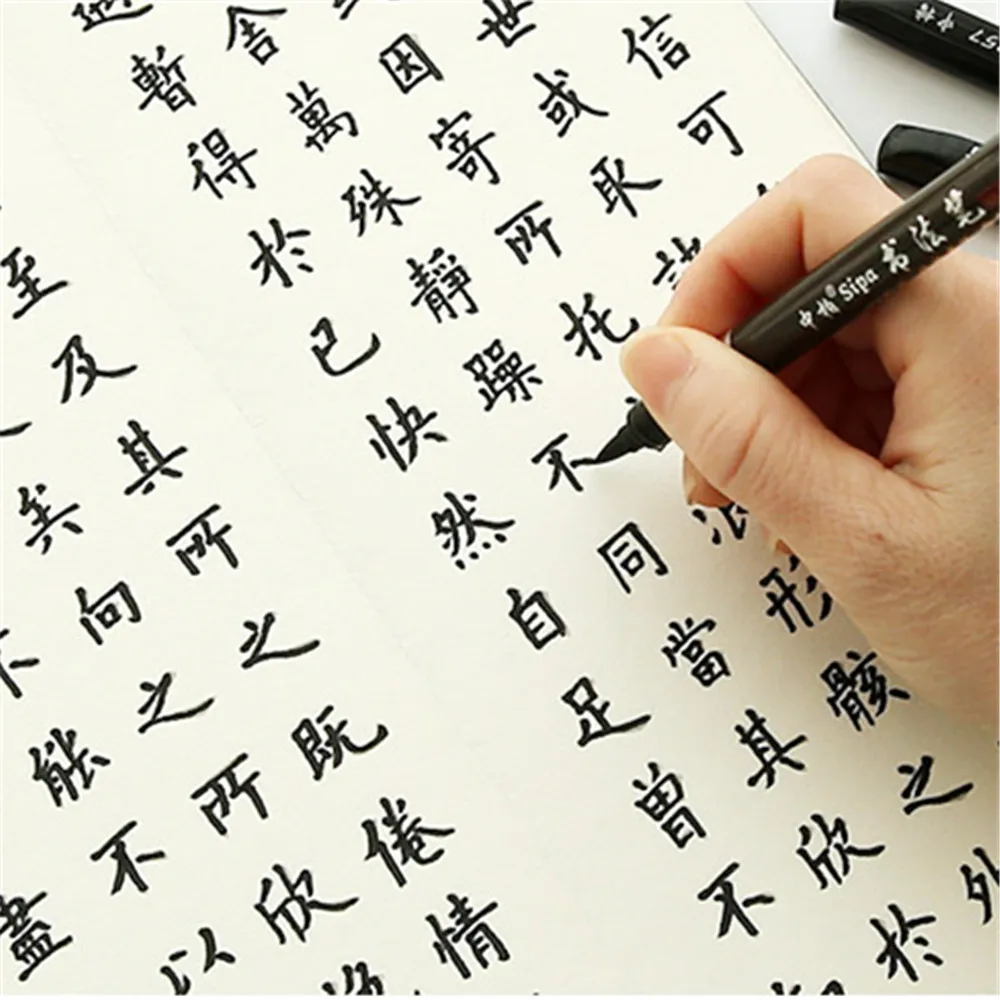 信可
世或取諸
因寄所托浪形骸之外
舍萬殊靜躁不同當其欣於
遇暫得於己快然自足曾不
至及其所之既倦情
矣向之所欣
不能不以
盡
中柏 Sipa 书法笔
中柏